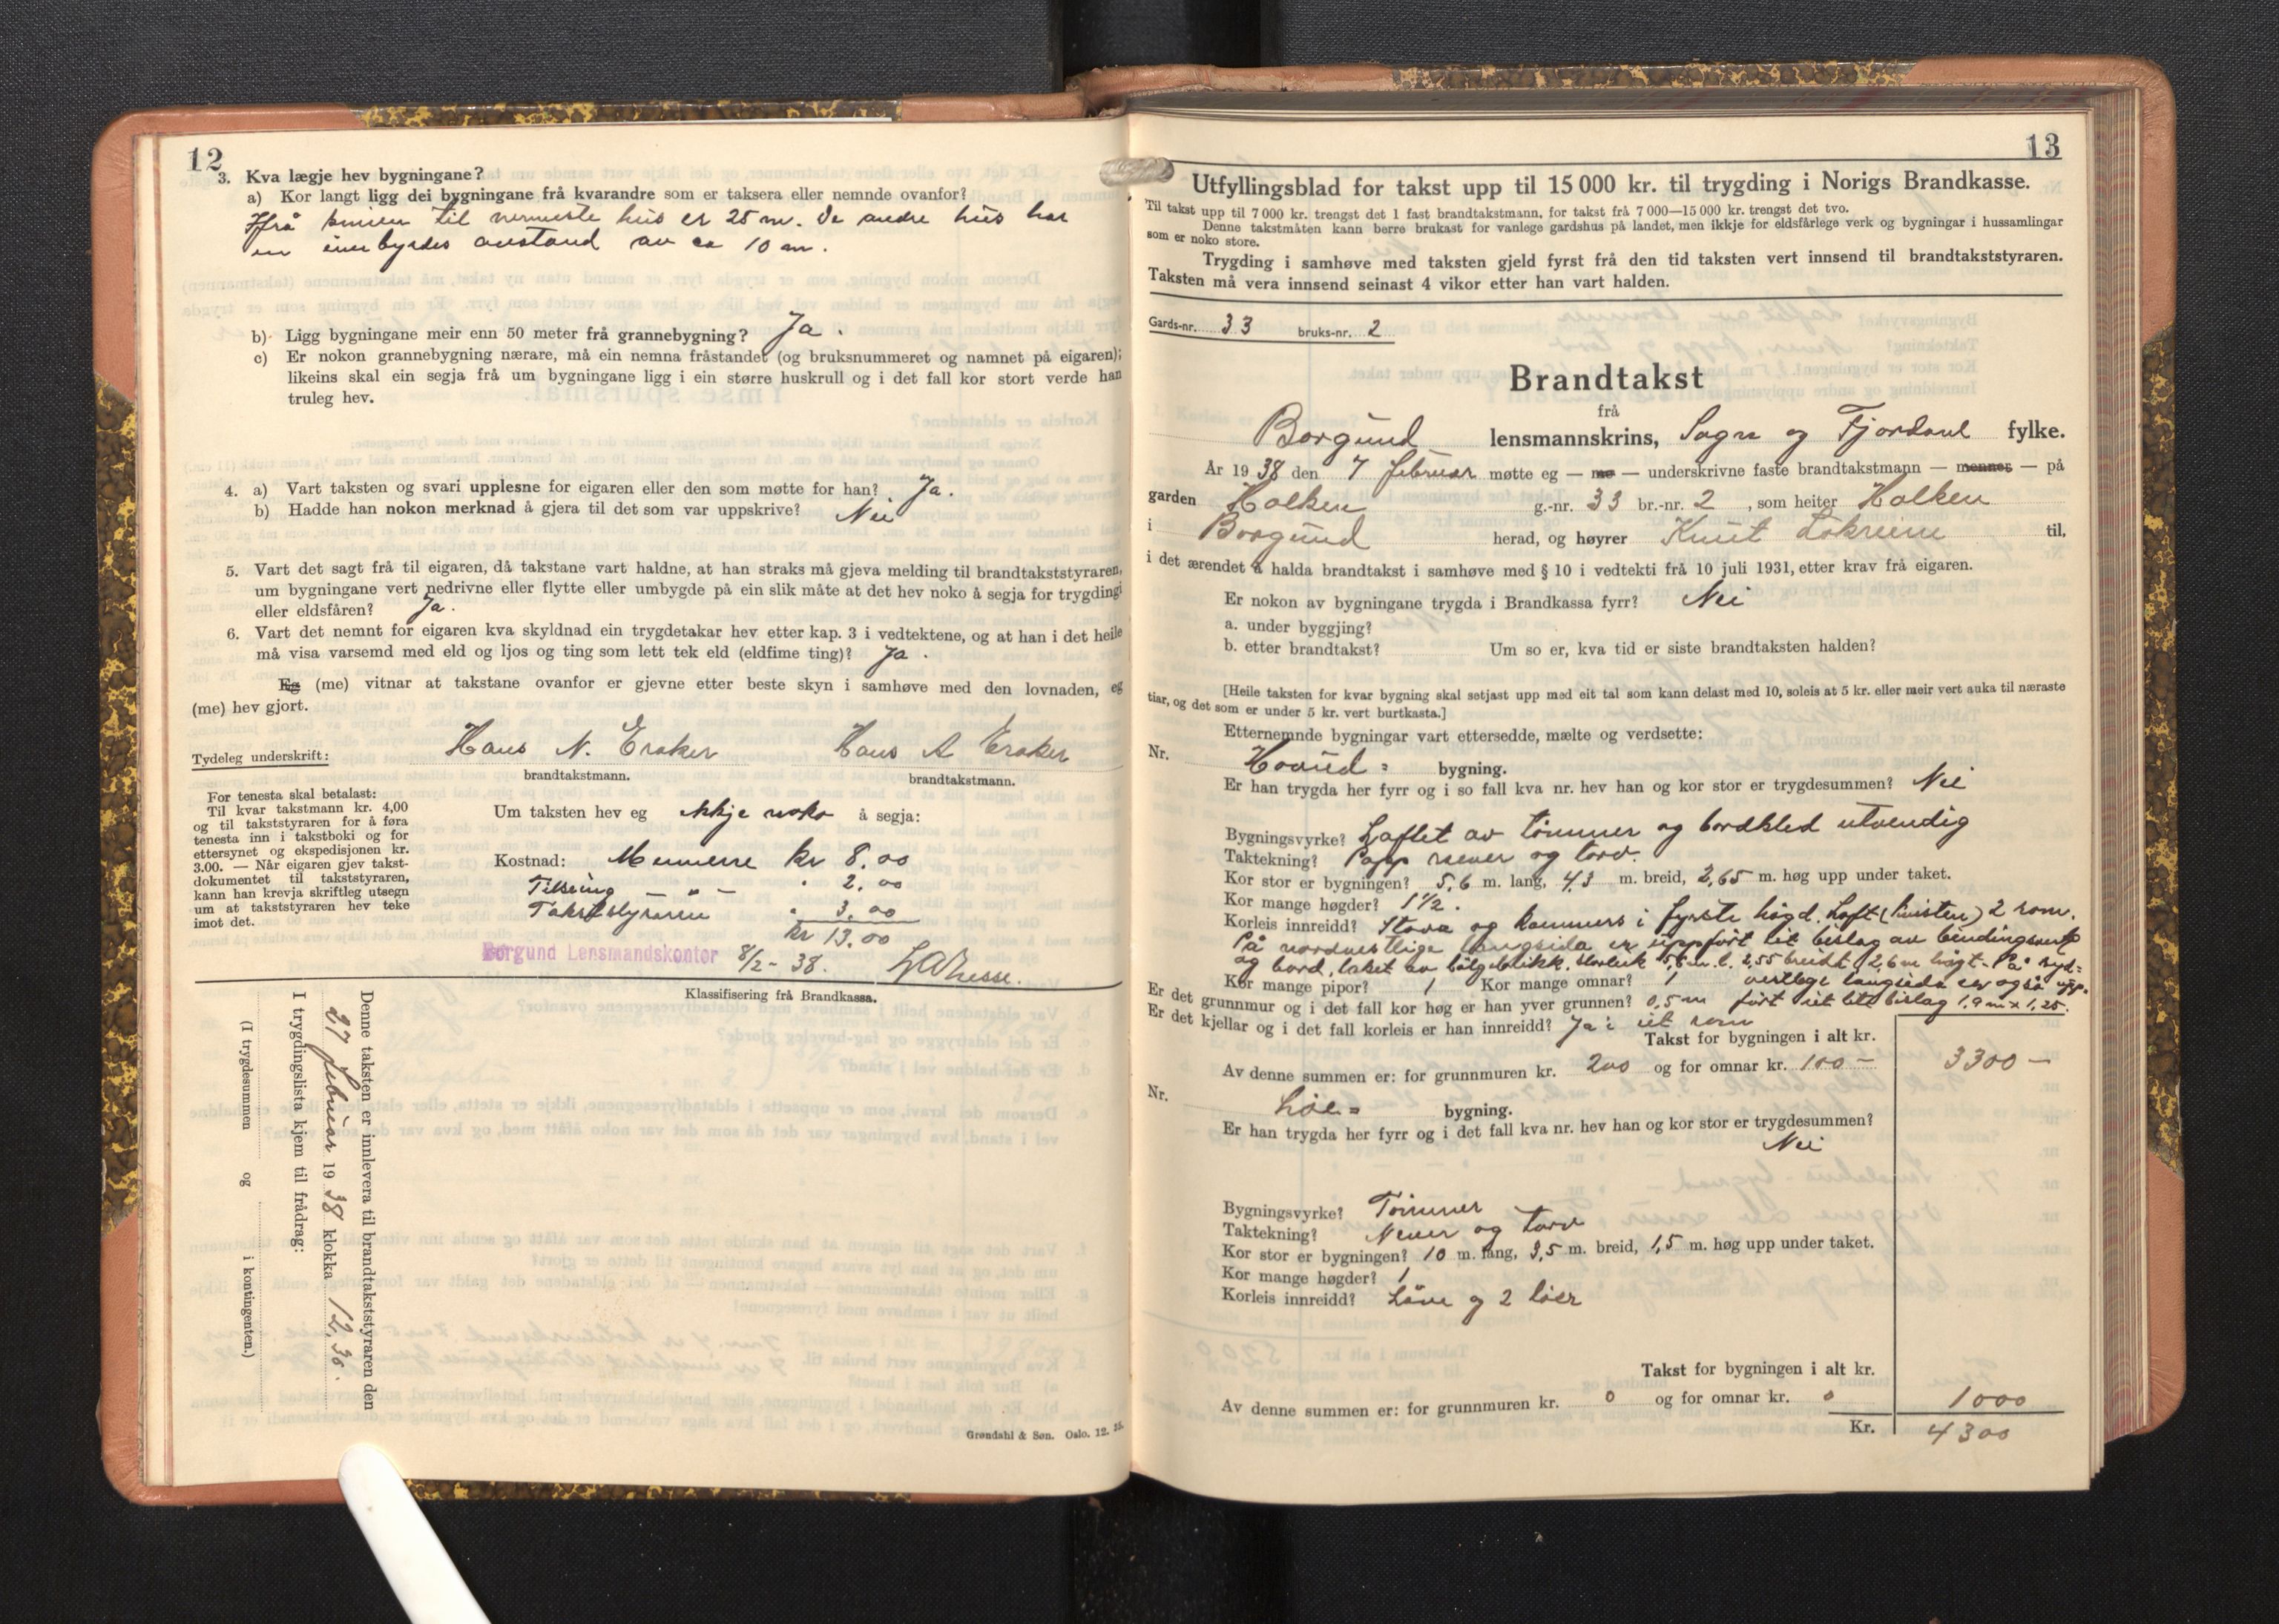 12
3. Kva lægje hev bygningane?
a) Kor langt ligg dei bygningane frå kvarandre som er taksera eller nemnde ovanfor?
til nermeste hus er 25 m. De andre hus har
en innbyrdes avstand av ca 10 m.
b) Ligg bygningane meir enn 50 meter frå grannebygning? Ja.
c) Er nokon grannebygning nærare, må ein nemna fråstandet (og bruksnummeret og namnet på eigaren);
likeins skal ein segja frå um bygningane ligg i ein større huskrull og i det fall kor stort verde han
truleg hev.
4. a) Vart taksten og svari upplesne for eigaren eller den som møtte for han? Ja.
b) Hadde han nokon merknad å gjera til det som var uppskrive? Nei
5. Vart det sagt frå til eigaren, då takstane vart haldne, at han straks må gjeva melding til brandtakststyraren,
um bygningane vert nedrivne eller flytte eller umbygde på ein slik måte at det hev noko å segja for trygdingi
eller eldsfåren? Ja.
6. Vart det nemnt for eigaren kva skyldnad ein trygdetakar hev etter kap. 3 i vedtektene, og at han i det heile
må visa varsemd med eld og ljos og ting som lett tek eld (eldfime ting)? Ja.
Eg (me) vitnar at takstane ovanfor er gjevne etter beste skyn i samhøve med den lovnaden, eg
(me) hev gjort.
Tydeleg underskrift: Hans N. Eraker Hans A Eraker
brandtakstmann. brandtakstmann.
For tenesta skal betalast:
Til kvar takstmann kr. 4,00
og til takststyraren for å føra
tenesta inn i takstboki og for
ettersynet og ekspedisjonen kr.
3.00. — Når eigaren gjev takst-
dokumentet til takststyraren,
kann han krevja skriftleg utsegn
um at takststyraren hev teke
imot det.
Um taksten hev eg ikkje noko å segja:
Kostnad: Mennerne kr 8.00
Tilseing — " — " 2.00
Takststyraren " 3.00
kr 13.00
Borgund Lensmandskontor 8/2 - 38.
Klassifisering frå Brandkassa.
Denne taksten er innlevera til brandtakststyraren den
27 februar 1938 klokka 12.30.
I trygdingslista kjem til frådrag:
(I trygdesummen og i kontingenten.)
Grøndahl & Søn. Oslo. 12. 35.
13
Utfyllingsblad for takst upp til 15 000 kr. til trygding i Norigs Brandkasse.
Til takst upp til 7 000 kr. trengst det 1 fast brandtakstmann, for takst frå 7 000—15 000 kr. trengst det tvo.
Denne takstmåten kann berre brukast for vanlege gardshus på landet, men ikkje for eldsfårlege verk og bygningar i hussamlingar
som er noko store.
Trygding i samhøve med taksten gjeld fyrst frå den tid taksten vert innsend til brandtakststyraren.
Taksten må vera innsend seinast 4 vikor etter han vart halden.
Gards-nr. 33 bruks-nr. 2
Brandtakst
frå
Borgund lensmannskrins, Sogn og Fjordane fylke.
År 1938 den 7 februar møtte eg — me — underskrivne faste brandtakstmann — mennes — på
garden Holken g.-nr. 33 br.-nr. 2, som heiter Holken
i Borgund herad, og høyrer Knut Lokreim til,
i det ærendet å halda brandtakst i samhøve med § 10 i vedtekti frå 10 juli 1931, etter krav frå eigaren.
Er nokon av bygningane trygda i Brandkassa fyrr? Nei
a. under byggjing?
b. etter brandtakst? Um so er, kva tid er siste brandtaksten halden?
[Heile taksten for kvar bygning skal setjast upp med eit tal som kann delast med 10, soleis at 5 kr. eller meir vert auka til næraste
tiar, og det som er under 5 kr. vert burtkasta.]
Etternemnde bygningar vart ettersedde, mælte og verdsette:
Nr. Hovud= bygning.
Er han trygda her fyrr og i so fall kva nr. hev han og kor stor er trygdesummen? Nei
Bygningsvyrke? Laftet av tømmer og bordkled utvendig
Taktekning? Papp never og torv.
Kor stor er bygningen? 5,6 m. lang, 4,3 m. breid, 2,65 m. høg upp under taket.
Kor mange høgder? 1 1/2.
Korleis innreidd? Stova og kammers i fyrste høgd. Loft (kvisten) 2 rom.
På nordvestlige langsida er uppført eit bislag av bindingsverk
og bord, taket av bølgeblikk. Storleik 5,6 m. l. 2,55 breidt, 2,6 m høgt. På syd=
Kor mange pipor? 1 Kor mange omnar? 1 vestlege langsida er også upp-
Er det grunnmur og i det fall kor høg er han yver grunnen? 0,5 m ført eit lite bislag 1,9 m x 1,25.
Er det kjellar og i det fall korleis er han innreidd? Ja: eit rom
Takst for bygningen i alt kr.
Av denne summen er: for grunnmuren kr. 200 og for omnar kr. 100— 3300—
Nr. Løe= bygning.
Er han trygda her fyrr og i det fall kva nr. hev han og kor stor er trygdesummen?
Nei
Bygningsvyrke? Tømmer
Taktekning? Never og torv
Kor stor er bygningen? 10 m. lang, 3,5 m. breid, 1,5 m. høg upp under taket.
Kor mange høgder? 1
Korleis innreidd? Låve og 2 løer
Takst for bygningen i alt kr.
Av denne summen er: for grunnmuren kr. 0 og for omnar kr. 0 1000
Kr. 4300